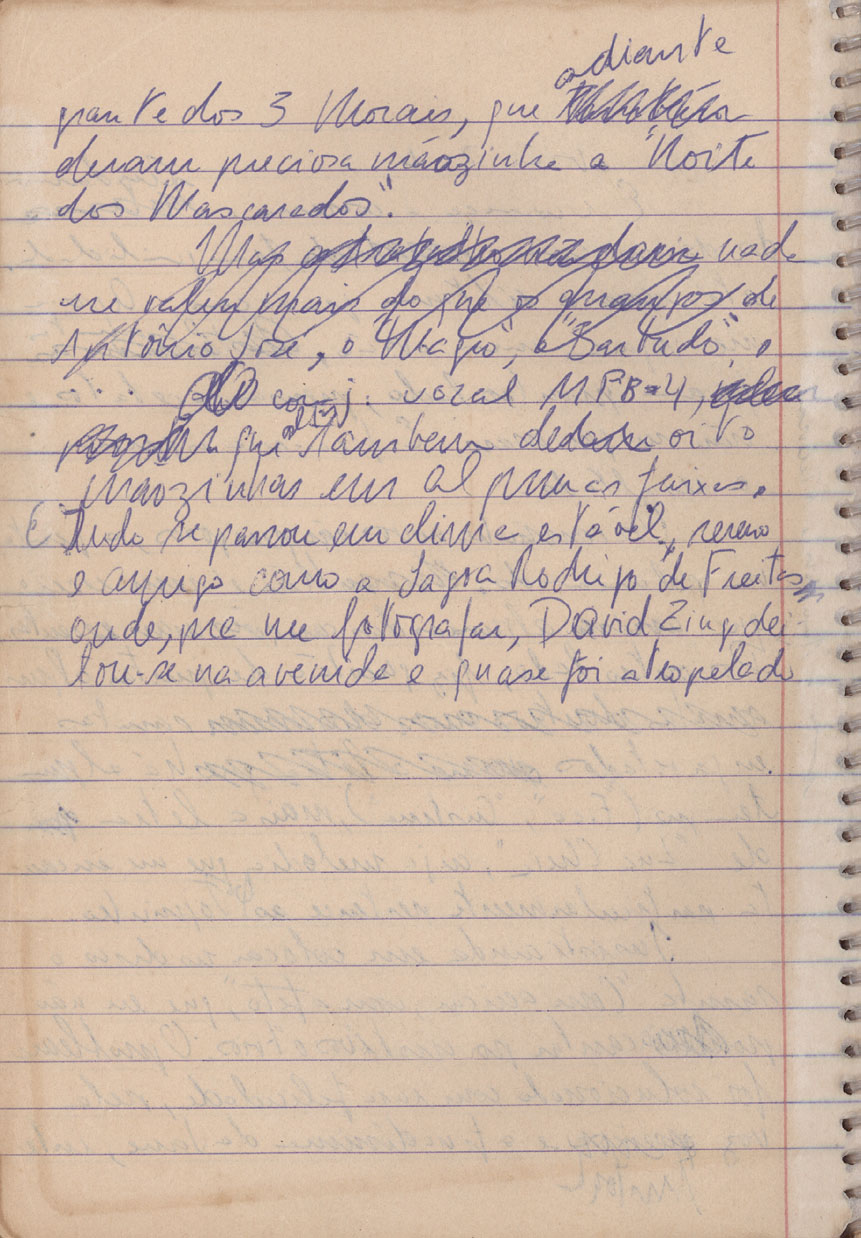 adiante
parte dos 3 Morais, que
deram preciosa mãozinha a "Noite
dos Mascarados".
Mas nada
me valeu mais do que os grampos de
Antônio José, o "Magro", o "Bartudo", o
O conj. vocal MPB-4,
que aliás também deda oito
mãozinhas em algumas faixas.
E Tudo se passou em clima estável, sereno
e amigo como a Lagoa Rodrigo de Freitas
onde, pra me fotografar, David Zing dei-
tou-se na avenida e quase foi atropelado